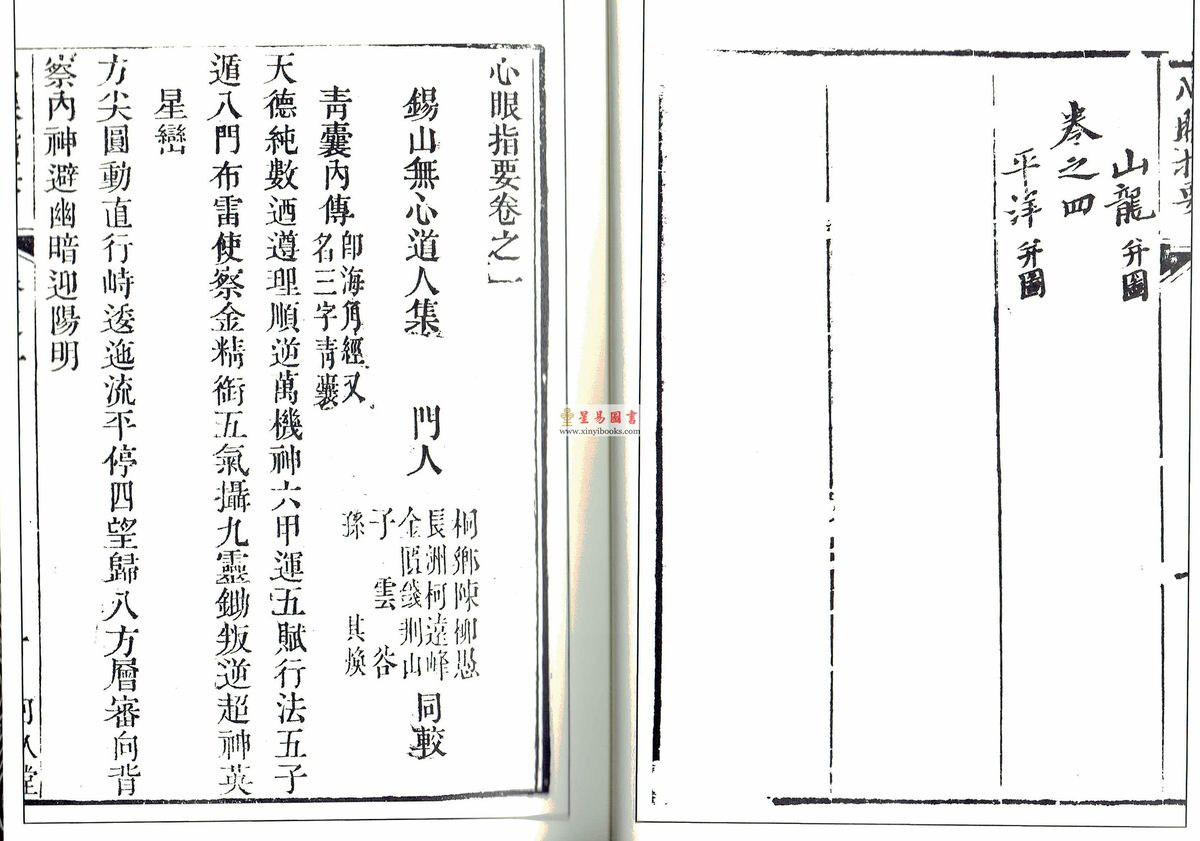 心眼指要
山龍 并圖
卷之四
平洋 并圖
心眼指要卷之一
錫山無心道人集 門人
桐鄉陳柳愚
長洲柯遠峰
金匱錢荆山
子 雲 谷
孫 其煥
同較
青囊內傳
即海角經又
名三字青囊
天德純數迺遵理順逆萬機神六甲運五賦行法五子
遁八門布雷使察金精銜五氣攝九靈鋤叛逆超神英
星巒
方尖圓動直行峙逶迤流平停四望歸八方層審向背
察內神避幽暗迎陽明
星易圖書
www.xinyibooks.com